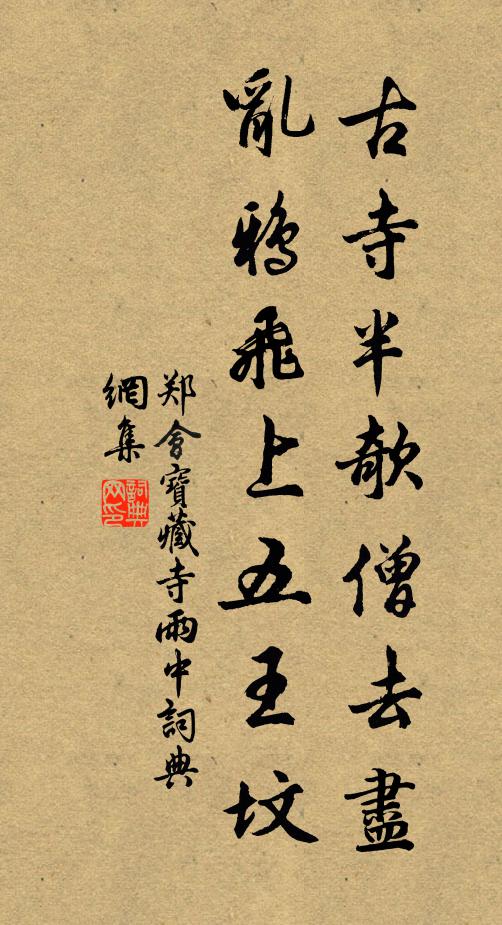 古寺半欹僧去盡
亂鴉飛上五王坟
郑會寶藏寺雨中詞典
網集
詞典
网印